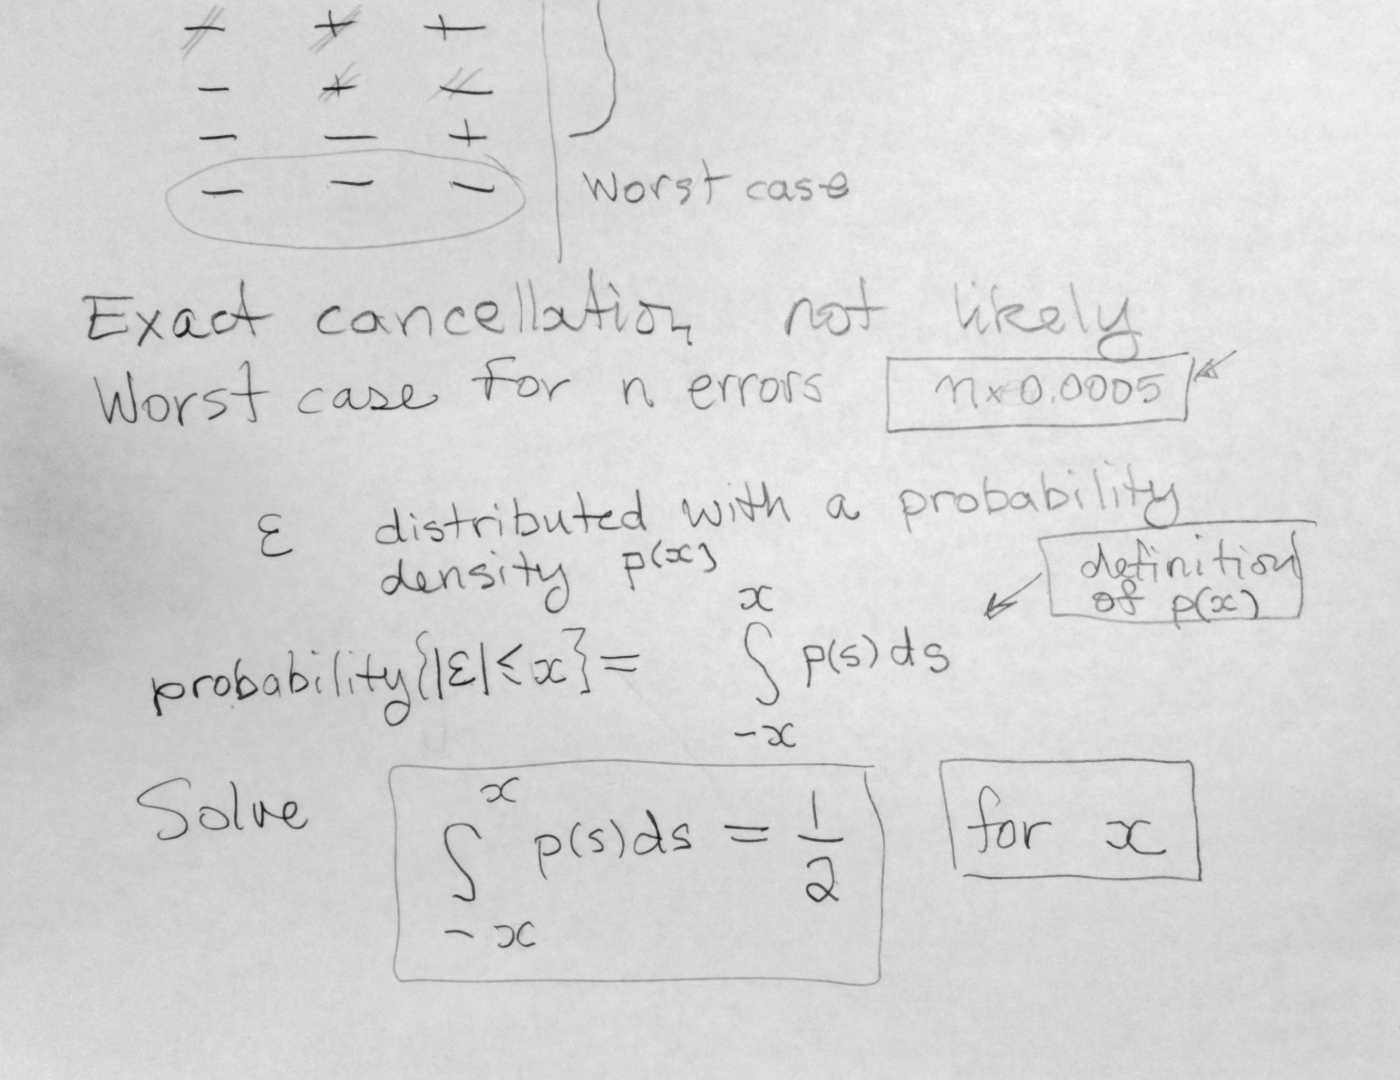 + + +
− + −
− − +
− − − Worst case
Exact cancellation not likely
Worst case for n errors n×0.0005
ε distributed with a probability
density p(x)
definition
of p(x)
probability{|ε|≤x} = ∫_{-x}^{x} p(s)ds
Solve ∫_{-x}^{x} p(s)ds = 1/2 for x